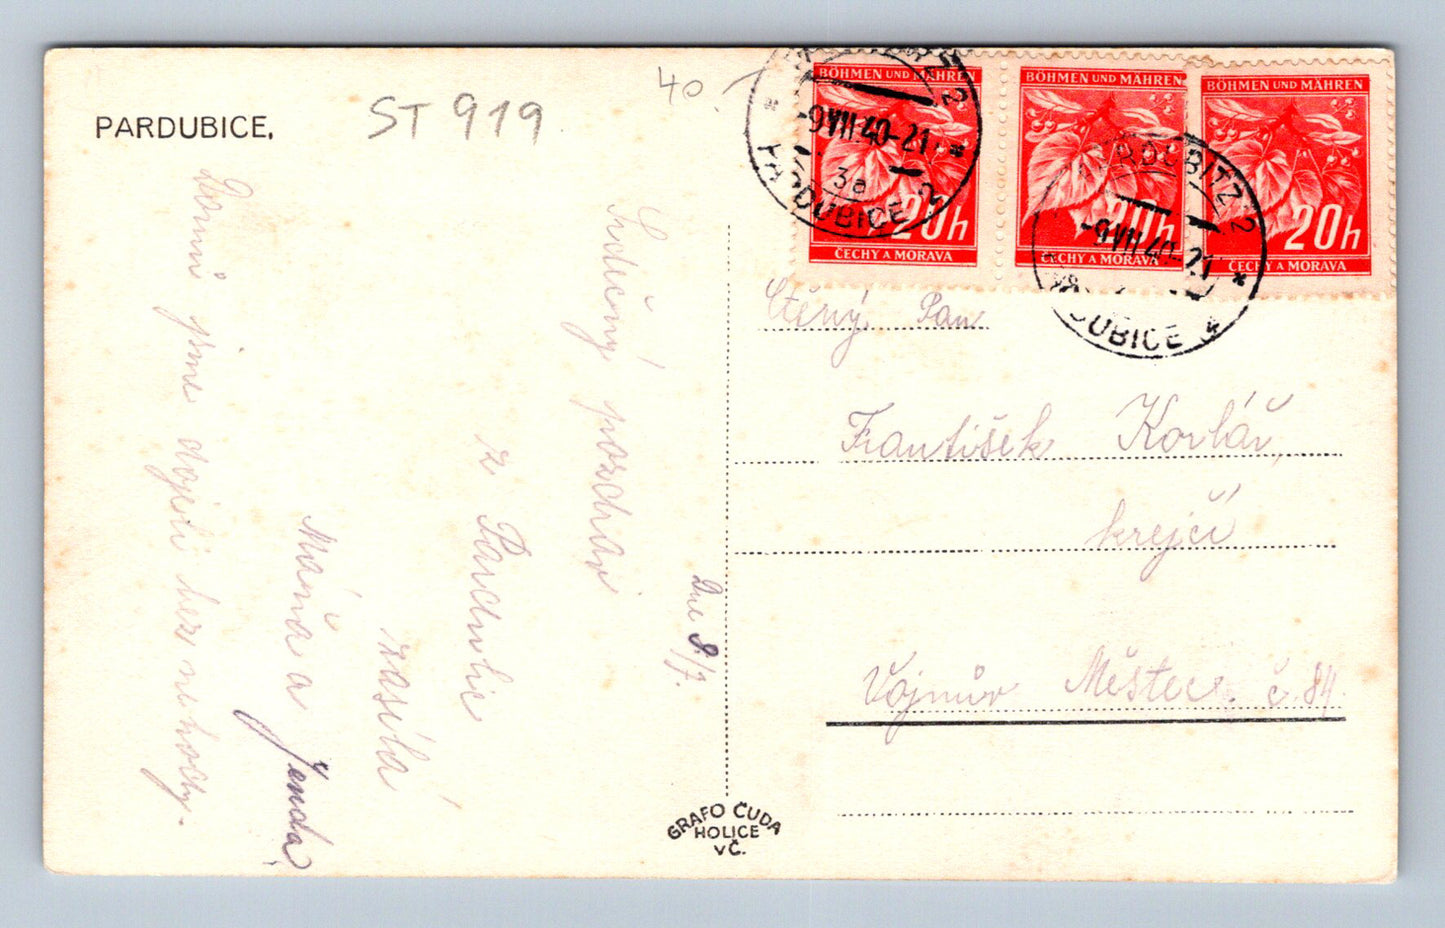 PARDUBICE,
ST 919
40.-
BÖHMEN UND MÄHREN
20h
ČECHY A MORAVA
BÖHMEN UND MÄHREN
20h
ČECHY A MORAVA
BÖHMEN UND MÄHREN
20h
ČECHY A MORAVA
2
-9VII40-21
3a
PARDUBICE 2
PARDUBITZ 2
-9VII40-21
DUBICE
Dne 8./7.
Srdečný pozdrav
z Pardubic
zasílá
Máňa a Jenda
Domů jsme dojeli bez nehody.
Ctěný Pan
František Korlář,
krejčí
Vojnův Městec. č. 84.
GRAFO ČUDA
HOLICE
V Č.